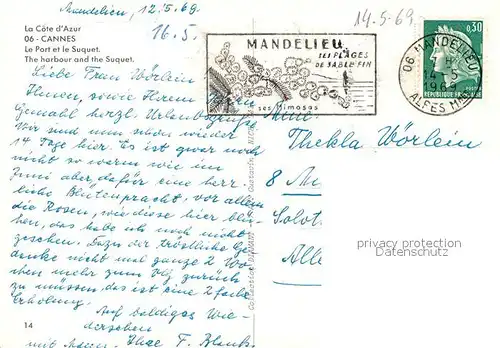 Mandelieu, 12.5.69
16.5.
14.5.69
La Côte d'Azur
06 - CANNES
Le Port et le Suquet.
The harbour and the Suquet.
MANDELIEU
SES PLAGES
DE SABLE FIN
ses Mimosas
06 MANDELIEU
14 - 5
ALPES MMES
0,30
RÉPUBLIQUE FRANÇAISE
Liebe Frau Wörlein
Ihnen, sowie Ihrem
Gemahl herzl. Urlaubsgrüße
Wir sind nun schon wieder
14 Tage hier. Es ist zwar noch
nicht so warm wie im
Juni aber dafür eine herr
liche Blütenpracht, vor allem
die Rosen, wie diese hier blü-
hen, das habe ich noch nicht
gesehen. Dazu der tröstliche Ge
danke nicht mal ganze 2 Wo
chen mehr zum zurück
zu müssen, das ist eine 2 fache
Erholung.
Auf baldiges Wie-
dersehen
mit Ihre F.
Thekla Wörlein
8
Solot
Alle
privacy protection
Datenschutz
14